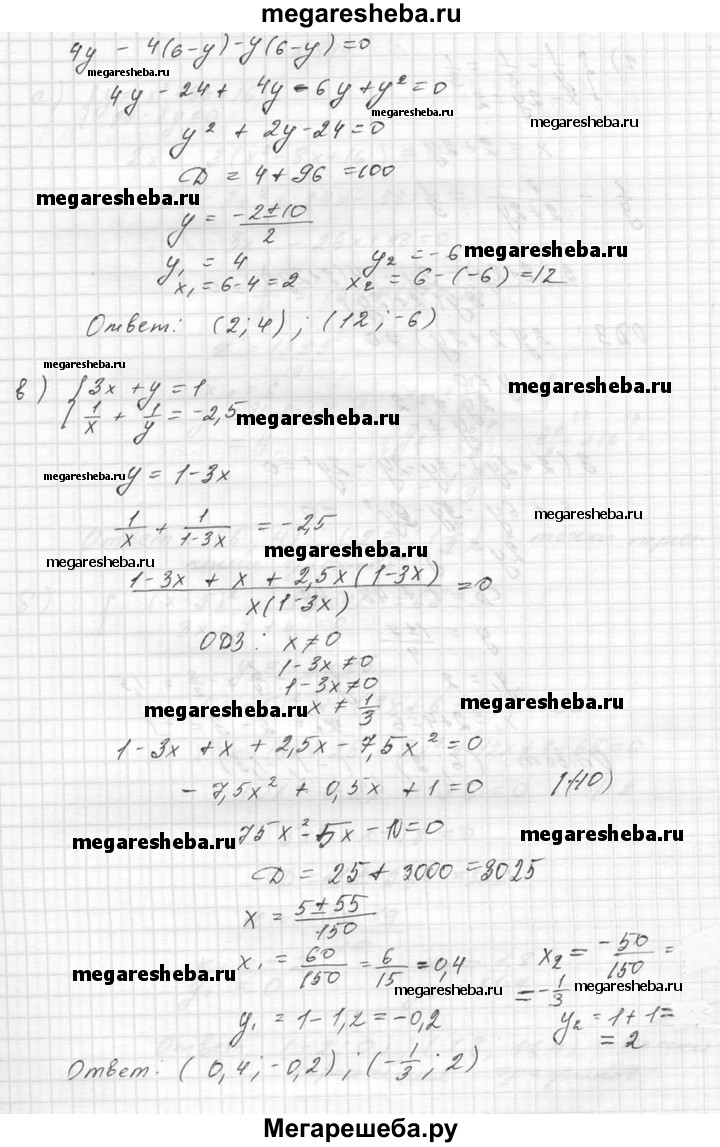 megaresheba.ru
4y - 4(6-y) - y(6-y) = 0
megaresheba.ru
4y - 24 + 4y - 6y + y² = 0
megaresheba.ru
megaresheba.ru
y² + 2y - 24 = 0
D = 4 + 96 = 100
megaresheba.ru
y = (-2 ± 10)/2
y₁ = 4 y₂ = -6
megaresheba.ru
x₁ = 6 - 4 = 2 x₂ = 6 - (-6) = 12
Ответ: (2; 4); (12; -6)
megaresheba.ru
megaresheba.ru
в) { 3x + y = 1
1/x + 1/y = -2,5
megaresheba.ru
megaresheba.ru
y = 1 - 3x
megaresheba.ru
1/x + 1/(1-3x) = -2,5
megaresheba.ru
megaresheba.ru
(1 - 3x + x + 2,5x(1-3x))/(x(1-3x)) = 0
ОДЗ: x ≠ 0
1 - 3x ≠ 0
1 - 3x ≠ 0
megaresheba.ru
x ≠ 1/3
megaresheba.ru
1 - 3x + x + 2,5x - 7,5x² = 0
- 7,5x² + 0,5x + 1 = 0
megaresheba.ru
75x² - 5x - 10 = 0
megaresheba.ru
D = 25 + 3000 = 3025
x = (5 ± 55)/150
x₁ = 60/150 = 6/15 = 0,4 x₂ = -50/150 =
megaresheba.ru
megaresheba.ru
= -1/3
megaresheba.ru
y₁ = 1 - 1,2 = -0,2 y₂ = 1 + 1 =
= 2
Ответ: (0,4; -0,2); (-1/3; 2)
Мегарешеба.ру